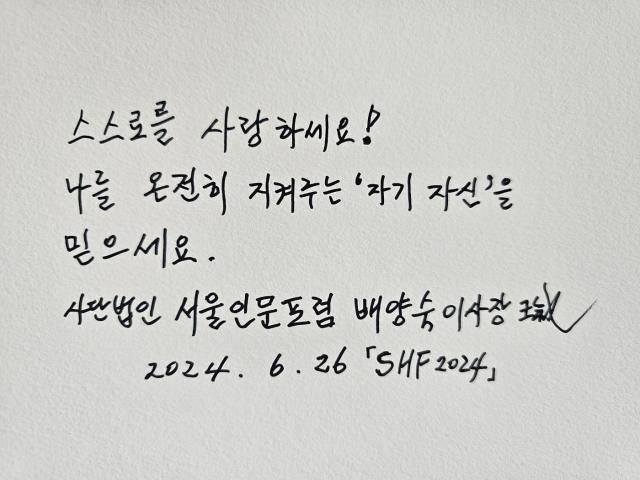 스스로를 사랑하세요!
나를 온전히 지켜주는 '자기 자신'을
믿으세요.
사단법인 서울인문포럼 배양숙 이사장
2024. 6. 26 「SHF2024」